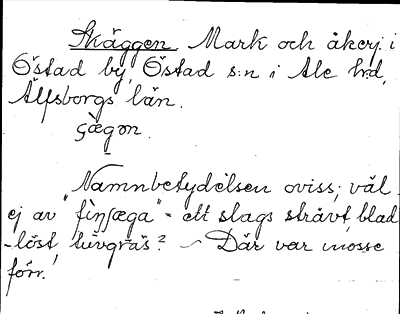 Skäggen. Mark och åkerj. i
Östad by, Östad s:n i Ale hd,
Älfsborgs län.
Namnbetydelsen oviss; väl
ej av "finſæga" - ett slags strävt, blad-
löst, tuvgräs? ~ Där var mosse
förr.